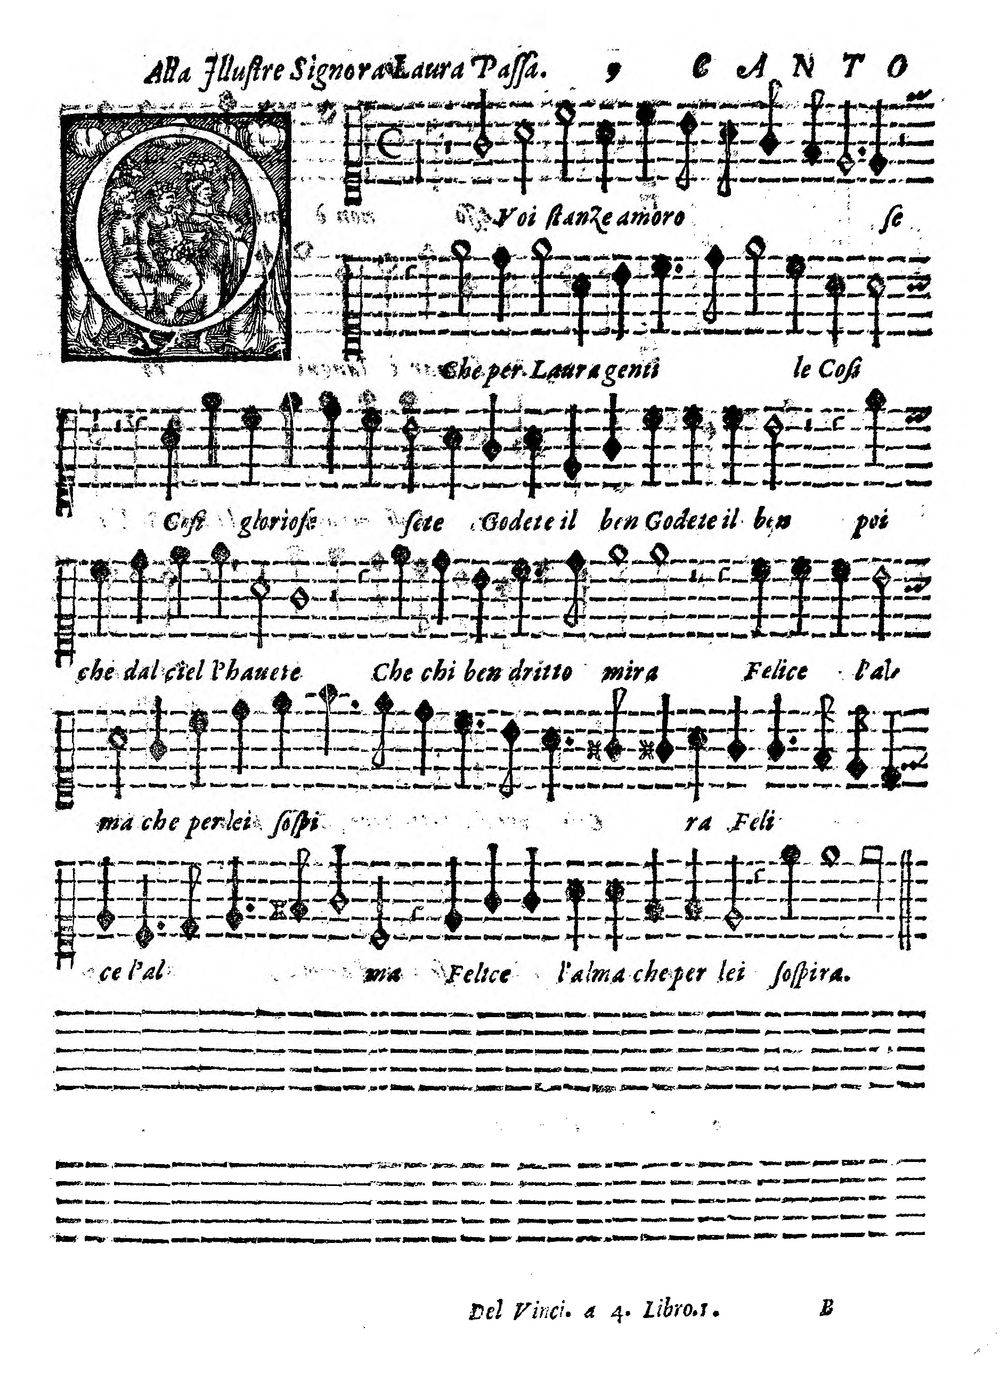 Alla Jlluſtre Signora Laura Paſſa. 9 C A N T O
O Voi ſtanZe amoro ſe
Che per Laura genti le Coſi
Coſi glorioſe ſete Godete il ben Godete il ben poi
che dal ciel l'hauete Che chi ben dritto mira Felice l'al
ma che per lei ſoſpi ra Feli
ce l'al ma Felice l'alma che per lei ſoſpira.
Del Vinci. a 4. Libro.1. B